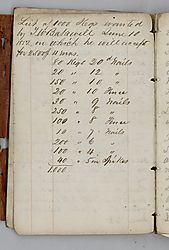 List of 1000 Kegs wanted
by Batawell June 10
on which he will
for 2500 $ 4 mos.
50 Kegs 20d Nails
20 " 12 "
150 " 10 "
20 " 10 Fence
30 " 9 Nails
250 " 8 "
100 " 8 Fence
10 " 7 Nails
200 " 6 "
100 " 4 "
40 " 5 in Spikes
1000